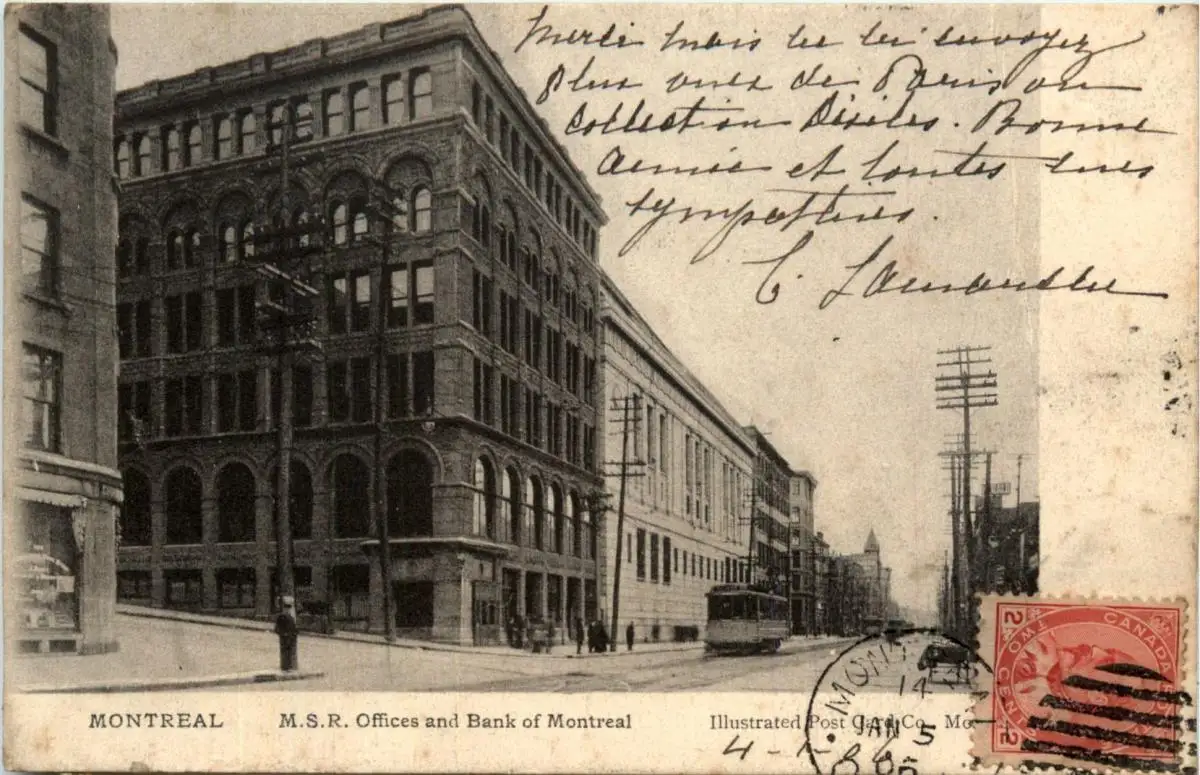 Merci mais ne
envoyez
plus vues de Paris ou
collection Désirés. Bonne
année et toutes mes
sympathies.
MONTREAL
M.S.R. Offices and Bank of Montreal
Illustrated Post Card Co., Mo
MON
14
JAN 5
06
4-1-06
CANADA
TWO CENTS
2
2